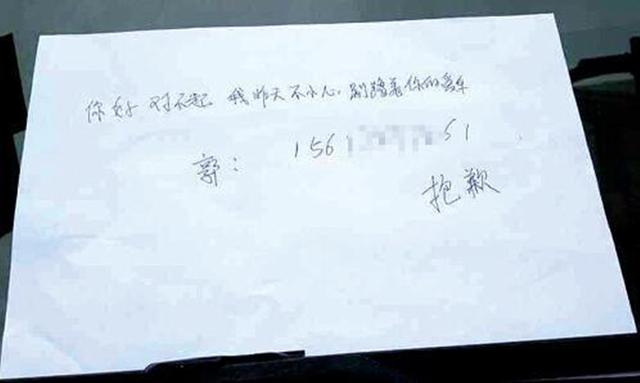 你好 对不起 我昨天不小心,剐蹭着你的爱车
郭: 1561 51
抱歉